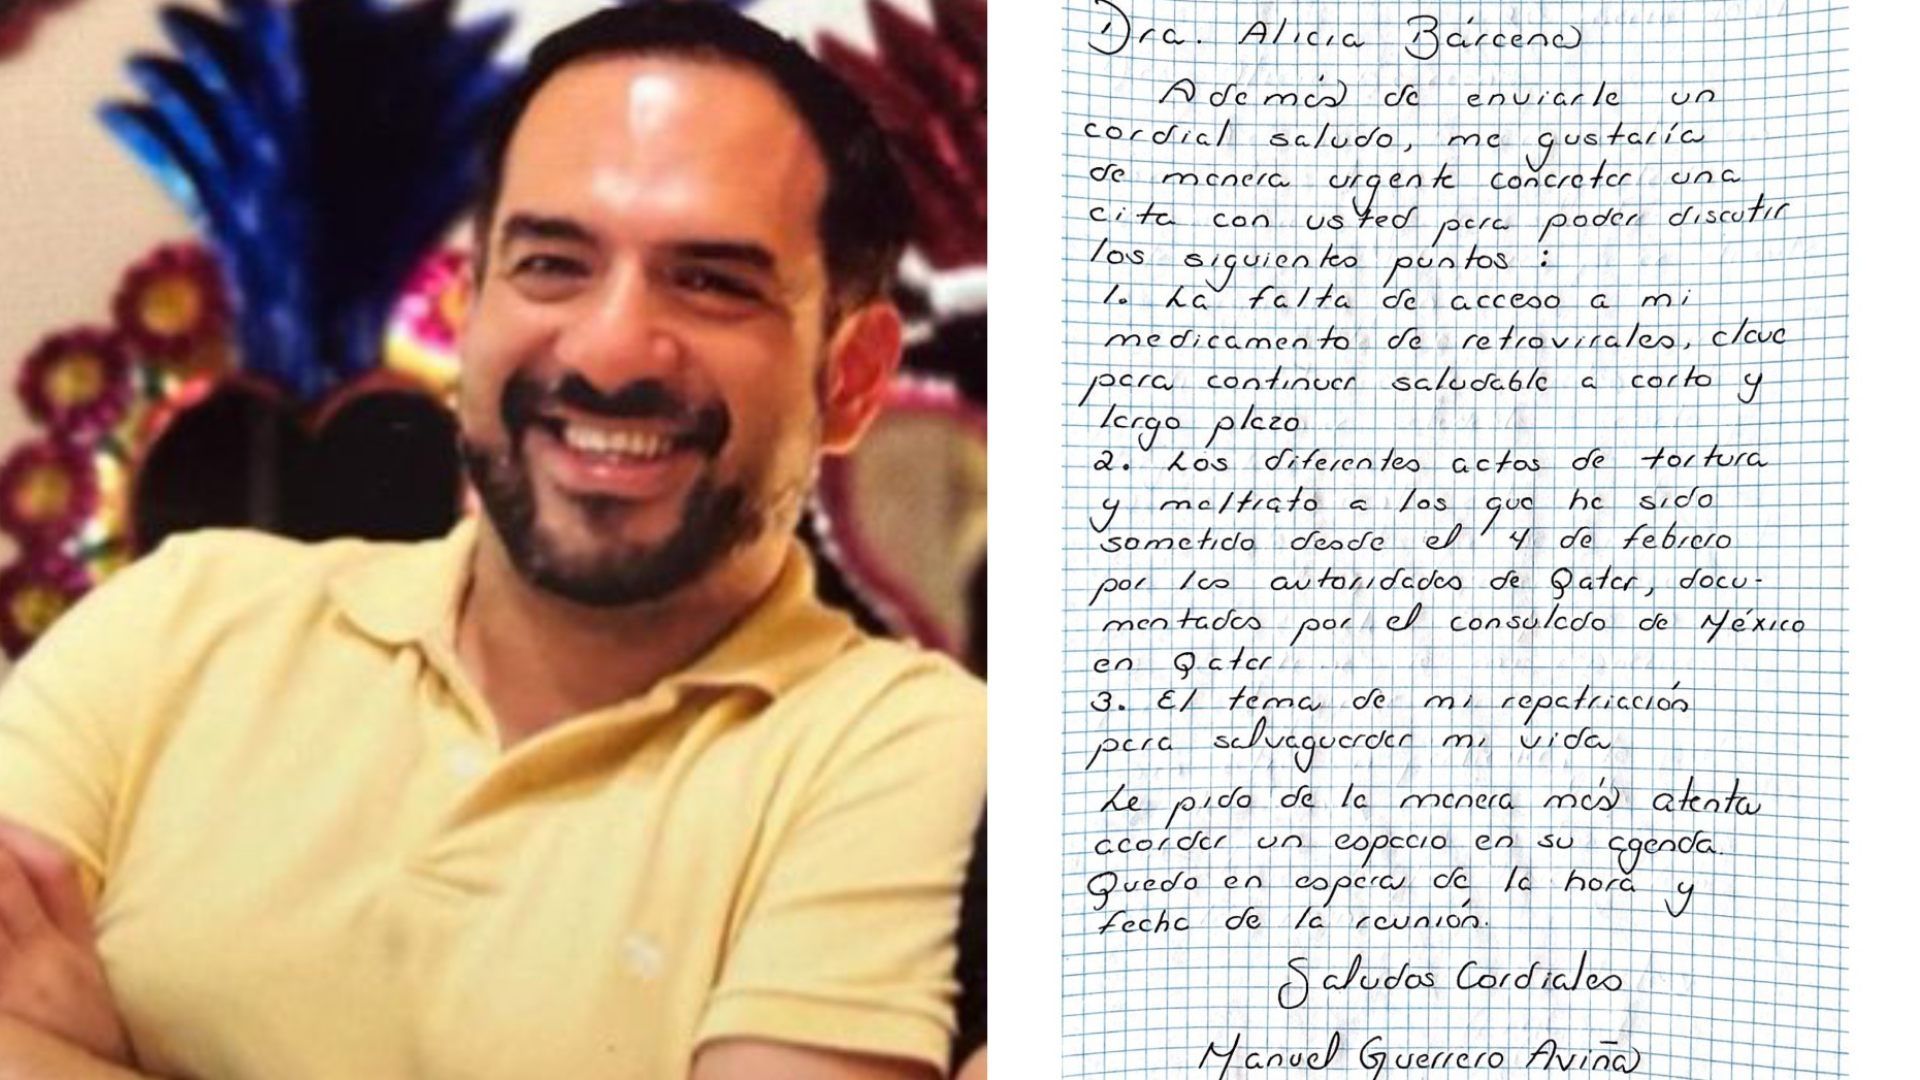 Dra. Alicia Bárcena
Además de enviarle un
cordial saludo, me gustaría
de manera urgente concretar una
cita con usted para poder discutir
los siguientes puntos:
1. La falta de acceso a mi
medicamento de retrovirales, clave
para continuar saludable a corto y
largo plazo
2. Los diferentes actos de tortura
y maltrato a los que he sido
sometido desde el 4 de febrero
por las autoridades de Qatar, docu-
mentados por el consulado de México
en Qatar
3. El tema de mi repatriación
para salvaguardar mi vida
Le pido de la manera más atenta
acordar un espacio en su agenda.
Quedo en espera de la hora y
fecha de la reunión.
Saludos Cordiales
Manuel Guerrero Aviña